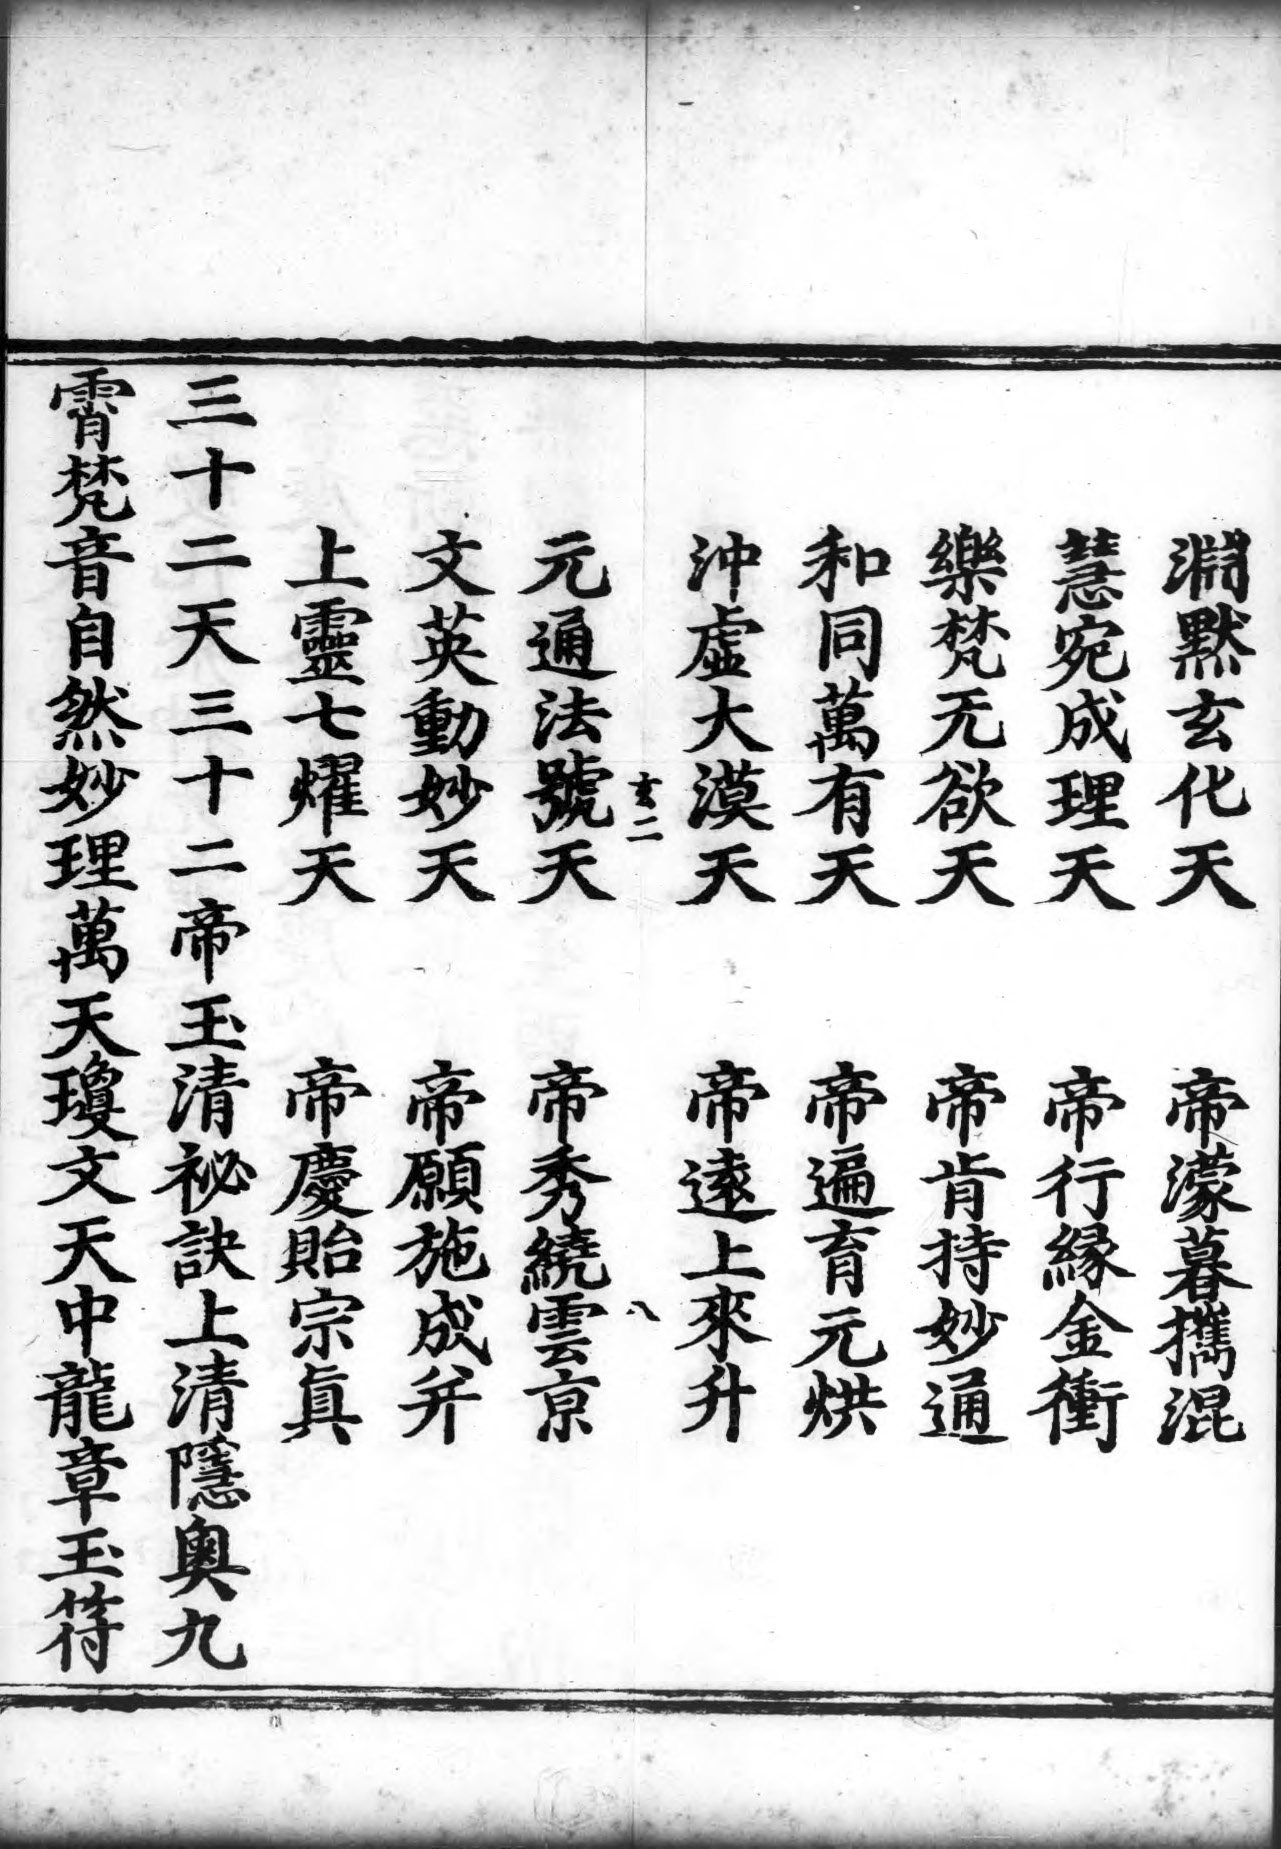 淵黙玄化天　帝濛暮攜混
慧宛成理天　帝行縁金衝
樂梵无欲天　帝肯持妙通
和同萬有天　帝遍育元烘
沖虛大漠天　帝遠上來升
玄二　八
元通法號天　帝秀繞雲京
文英動妙天　帝願施成弁
上靈七燿天　帝慶貽宗真
三十二天三十二帝玉清祕訣上清隱奧九
霄梵音自然妙理萬天瓊文天中龍章玉符